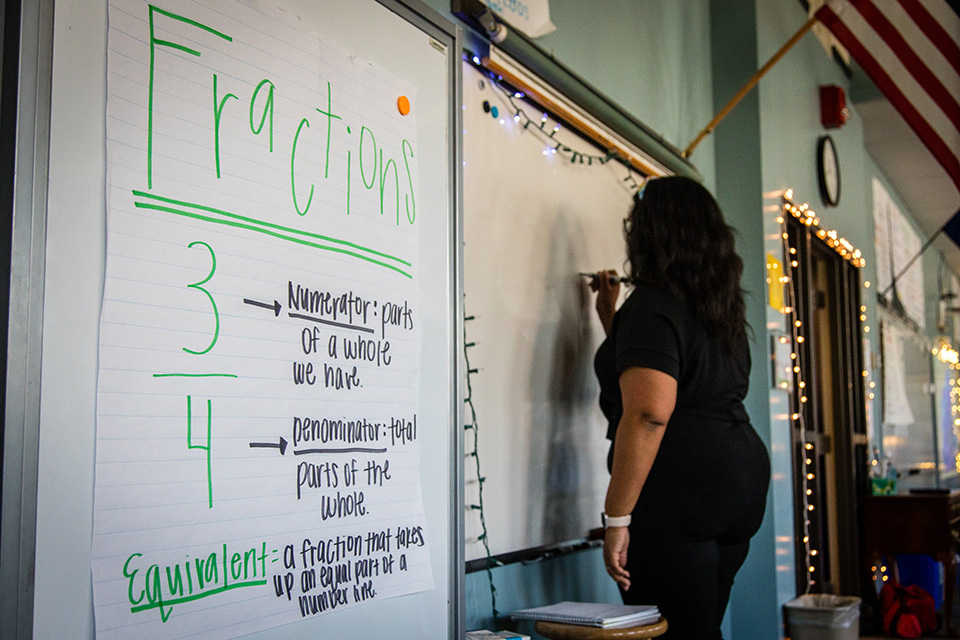 Fractions
3 → Numerator: parts
of a whole
we have.
4 → Denominator: total
parts of the
whole.
Equivalent = a fraction that takes
up an equal part of a
number line.